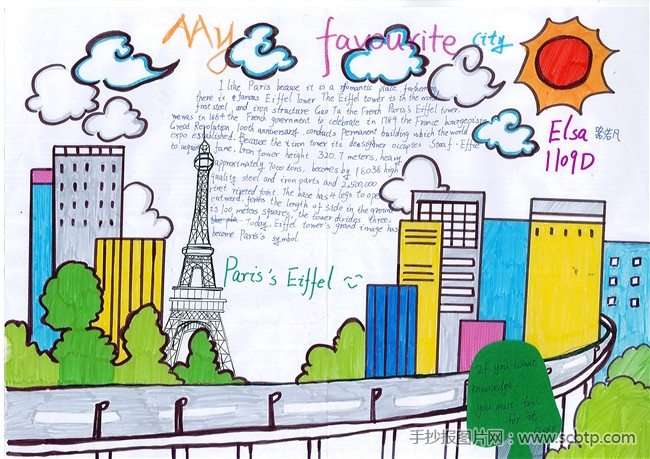 My favourite city
I like Paris because it is a romantic place, frequency
there is a famous Eiffel Tower The Eiffel tower is in the world
first steel, and iron structure Gao Ta the French Paris's Eiffel tower.
was in 1884 the French government to celebrate in 1789 the France bourgeoisie
Great Revolution 100th anniversary, conducts permanent building which the world
expo established. Because the iron tower its designer occupies Staaf·Effie
to acquire fame. Iron tower height 320.7 meters, heavy
approximately 7000 tons, becomes by 18038 high
quality steel and iron parts and 2,500,000
rivet riveted joint. The base has 4 legs to open
outward, forms the length of side in the ground
is 100 meters square, the tower divides three.
today, Eiffel tower's grand image has
become Paris's symbol.
Elsa
1109D
Paris's Eiffel
If you want
knowledge,
you must toil
for it
手抄报图片网:www.scbtp.com